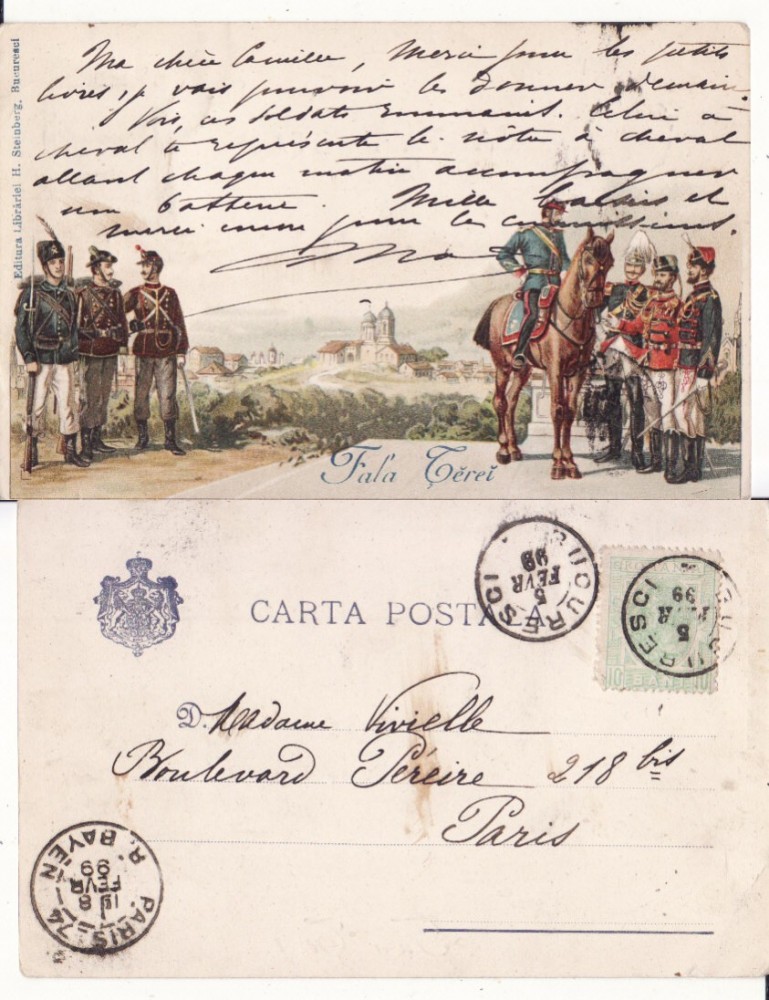 Editura Librăriei H. Steinberg, Bucuresci
Ma chère Camille, Merci pour les petits
livres, je vais pouvoir les donner demain.
Vois, ces soldats Roumains. Celui à
cheval représente le nôtre à cheval
allant chaque matin accompagner
Mille baisers et
merci encore pour les commissions.
Fal'a Țĕreĭ
CARTA POSTALA
BUCURESCI
5
FEVR
99
ROMANIA
BUCURESCI
5
FEVR
99
10 BANI 10
D. Madame Vivielle
Boulevard Péreire 218 bis
Paris
PARIS 74
R. BAYEN
8
FEVR
99